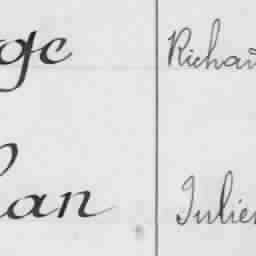 ge Richar
an Julien